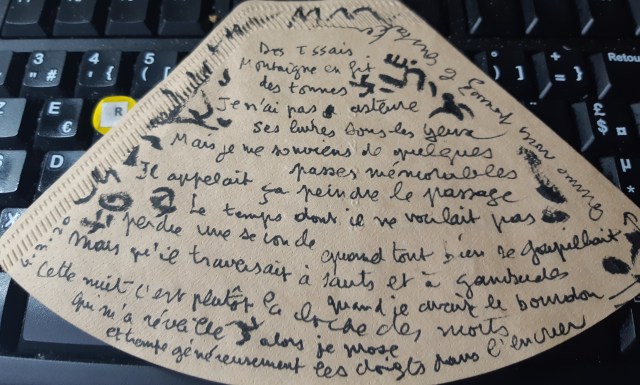 Des Essais
Montaigne en fit
des tonnes
Je n'ai pas asteure
ses livres sous les yeux
Mais je me souviens de quelques
passes mémorables
Il appelait ça peindre le passage
Le temps dont il ne voulait pas
perdre une seconde quand tout bien se goupillait
Mais qu'il traversait à sauts et à gambades
quand j'avais le bourdon
Cette nuit c'est plutôt la cloche des morts
qui m'a réveillé alors je
et trempe généreusement les doigts dans l'encrier
3 "
#
4 '
5 (
+ =
}
Retou
E
€
R
D
Z
£
$
¤
%
µ